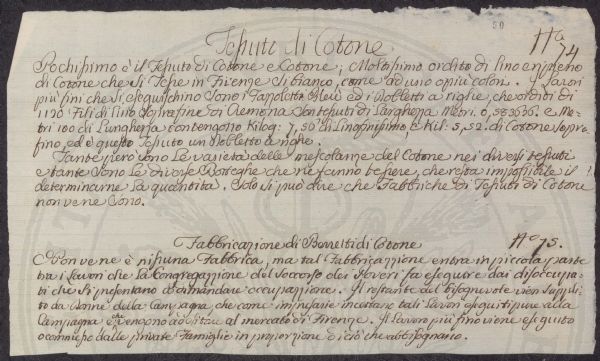 50
Tessuti di Cotone. N.º 74
Pochissimo è il Tessuto di Cotone e Cotone; Moltissimo ordito di lino e ripieno
di Cotone che si Tesse in Firenze sì bianco, come ad uno o più colori. I Lavori
più fini che si eseguischino sono i Fazzoletti Bleu ed i Nobletti a righe, che orditi di
1120 Fili di Lino Soprafino di Cremona son tessuti di Larghezza Metri. 0,583635. e Me-
tri 100 di Lunghezza contengono Kilog: 7,50 di Lino finissimo e Kil: 5,52. di Cotone sopra
fino, ed è questo Tessuto un Nobletto a righe.
Tante però sono Le varietà delle mescolanze del Cotone nei diversi tessuti
e tante sono Le diverse Botteghe che ne fanno tessere, che resta impossibile il
determinarne La quantità. Solo si può dire che Fabbriche di Tessuti di Cotone
non ve ne sono.
Fabbricazione di Berretti di Cotone N.º 75.
Non ve ne è nissuna Fabbrica, ma tal Fabbricazione entra in piccola parte
tra i lavori che La Congregazione del Soccorso dei Poveri fa eseguire dai disoccupa-
ti che si presentano a domandare occupazione. Il restante del bisognevole vien suppli-
to da Donne della Campagna che come in passato incettano tali Lavori eseguiti pure alla
Campagna e che vengono a vendere al mercato di Firenze. Il Lavoro più fino viene eseguito
o commesso dalle private Famiglie in proporzione di ciò che abbisognano.